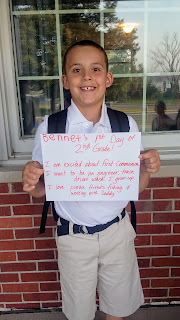 Bennet's 1st Day of
2nd Grade!
I am excited about First Communion
I want to be an engineer, train
driver when I grow up.
I love soccer, friends, fishing &
with Daddy